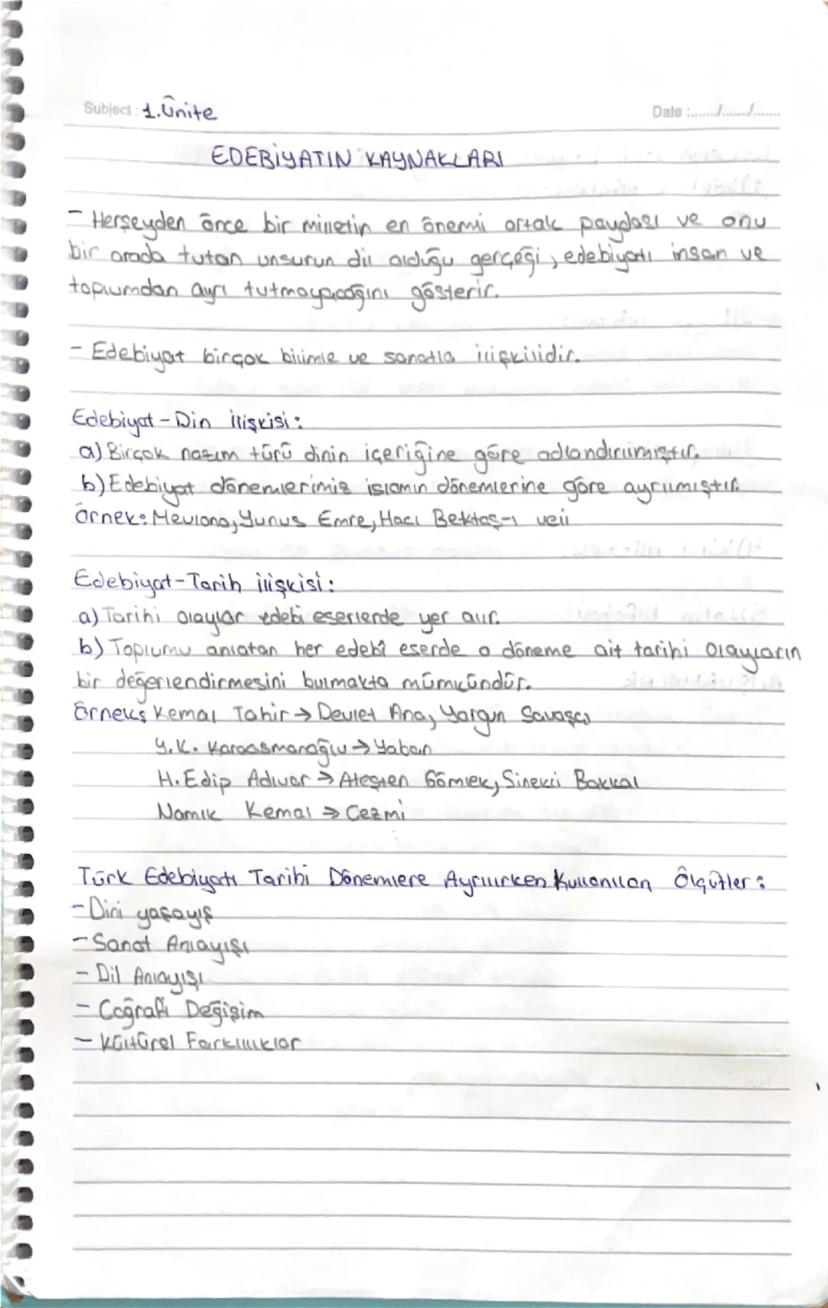 Subject: 1.Ünite Date :....../....../......
EDEBİYATIN KAYNAKLARI
- Herşeyden önce bir milletin en önemi ortak paydası ve onu
bir arada tutan unsurun dil olduğu gerçeği, edebiyatı insan ve
toplumdan ayrı tutmayacağını gösterir.
- Edebiyat birçok bilimle ve sanatla ilişkilidir.
Edebiyat-Din ilişkisi:
a) Birçok nazım türü dinin içeriğine göre adlandırılmıştır.
b) Edebiyat dönemlerimiz islamın dönemlerine göre ayrılmıştır.
Örnek: Mevlana, Yunus Emre, Hacı Bektaş-ı veli
Edebiyat-Tarih ilişkisi:
a) Tarihi olaylar edebi eserlerde yer alır.
b) Toplumu anlatan her edebî eserde o döneme ait tarihi olayların
bir değerlendirmesini bulmakta mümkündür.
Örnek; Kemal Tahir → Devlet Ana, Yorgun Savaşçı
Y.K. Karaosmanoğlu → Yaban
H. Edip Adıvar → Ateşten Gömlek, Sinekli Bakkal
Namık Kemal → Cezmi
Türk Edebiyatı Tarihi Dönemlere Ayrılırken Kullanılan Ölçütler:
- Dini yaşayış
- Sanat Anlayışı
- Dil Anlayışı
- Coğrafi Değişim
- Kültürel Farklılıklar